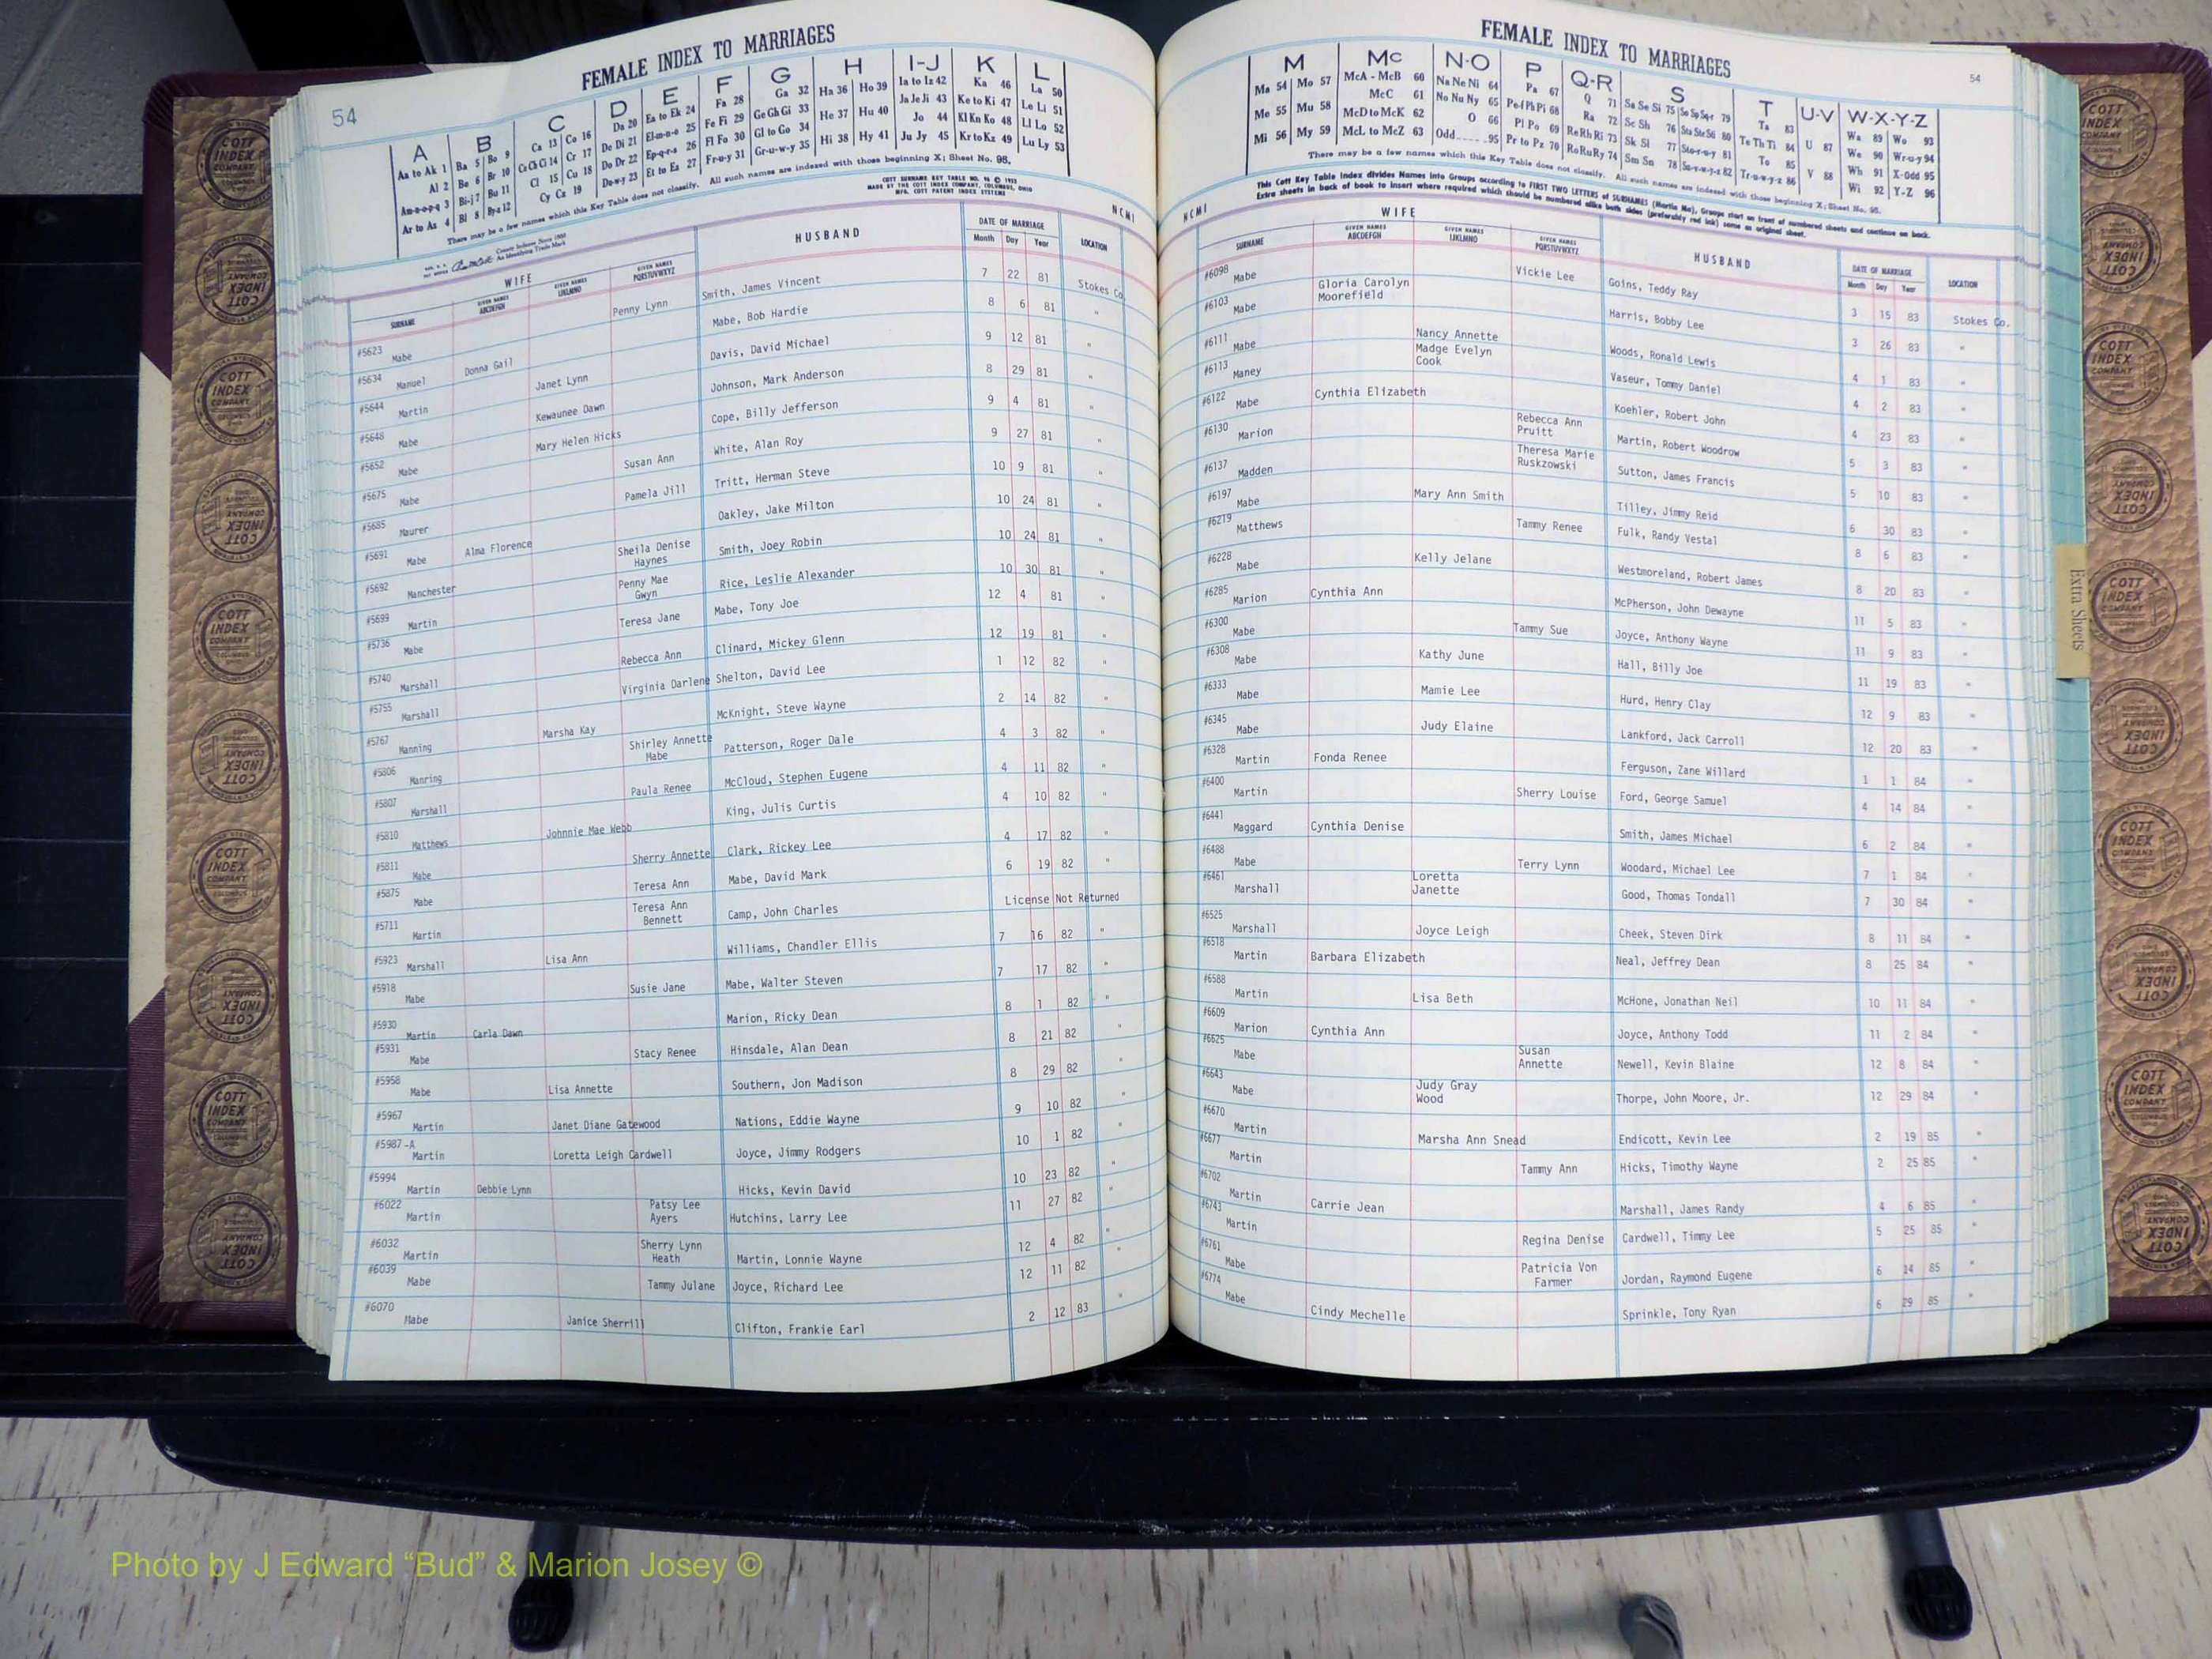 54
FEMALE INDEX TO MARRIAGES
A B C D E F G H I-J K L
Aa to Ak 1 Ba 5 Bo 9 Ca 13 Co 16 Da 20 Ea to Ek 24 Fa 28 Ga 32 Ha 36 Ho 39 Ia to Iz 42 Ka 46 La 50
Al 2 Be 6 Br 10 Ce Ch Ci 14 Cr 17 De Di 21 El-m-n-o 25 Fe Fi 29 Ge Gh Gi 33 He 37 Hu 40 Ja Je Ji 43 Ke to Ki 47 Le Li 51
Am-n-o-p-q 3 Bi-j 7 Bu 11 Cl 15 Cu 18 Do Dr 22 Ep-q-r-s 26 Fl Fo 30 Gl to Go 34 Hi 38 Hy 41 Jo 44 Kl Kn Ko 48 Ll Lo 52
Ar to As 4 Bl 8 By-z 12 Cy Cz 19 Du-w-y 23 Et to Ez 27 Fr-u-y 31 Gr-u-w-y 35 Ju Jy 45 Kr to Kz 49 Lu Ly 53
There may be a few names which this Key Table does not classify. All such names are indexed with those beginning X; Sheet No. 98.
NCMI
WIFE HUSBAND DATE OF MARRIAGE LOCATION
SURNAME GIVEN NAMES ABCDEFGH GIVEN NAMES IJKLMNO GIVEN NAMES PQRSTUVWXYZ Month Day Year
#5623 Mabe Penny Lynn Smith, James Vincent 7 22 81 Stokes Co.
#5634 Manuel Donna Gail Mabe, Bob Hardie 8 6 81 "
#5644 Martin Janet Lynn Davis, David Michael 9 12 81 "
#5648 Mabe Kewaunee Dawn Johnson, Mark Anderson 8 29 81 "
#5652 Mabe Mary Helen Hicks Cope, Billy Jefferson 9 4 81 "
#5675 Mabe Susan Ann White, Alan Roy 9 27 81 "
#5685 Maurer Pamela Jill Tritt, Herman Steve 10 9 81 "
#5691 Mabe Alma Florence Oakley, Jake Milton 10 24 81 "
#5692 Manchester Sheila Denise Haynes Smith, Joey Robin 10 24 81 "
#5699 Martin Penny Mae Gwyn Rice, Leslie Alexander 10 30 81 "
#5736 Mabe Teresa Jane Mabe, Tony Joe 12 4 81 "
#5740 Marshall Rebecca Ann Clinard, Mickey Glenn 12 19 81 "
#5755 Marshall Virginia Darlene Shelton, David Lee 1 12 82 "
#5767 Manning Marsha Kay McKnight, Steve Wayne 2 14 82 "
#5806 Manring Shirley Annette Mabe Patterson, Roger Dale 4 3 82 "
#5807 Marshall Paula Renee McCloud, Stephen Eugene 4 11 82 "
#5810 Matthews Johnnie Mae Webb King, Julis Curtis 4 10 82 "
#5811 Mabe Sherry Annette Clark, Rickey Lee 4 17 82 "
#5875 Mabe Teresa Ann Mabe, David Mark 6 19 82 "
#5711 Martin Teresa Ann Bennett Camp, John Charles License Not Returned
#5923 Marshall Lisa Ann Williams, Chandler Ellis 7 16 82 "
#5918 Mabe Susie Jane Mabe, Walter Steven 7 17 82 "
#5930 Martin Carla Dawn Marion, Ricky Dean 8 1 82 "
#5931 Mabe Stacy Renee Hinsdale, Alan Dean 8 21 82 "
#5958 Mabe Lisa Annette Southern, Jon Madison 8 29 82 "
#5967 Martin Janet Diane Gatewood Nations, Eddie Wayne 9 10 82 "
#5987-A Martin Loretta Leigh Cardwell Joyce, Jimmy Rodgers 10 1 82
#5994 Martin Debbie Lynn Hicks, Kevin David 10 23 82 "
#6022 Martin Patsy Lee Ayers Hutchins, Larry Lee 11 27 82 "
#6032 Martin Sherry Lynn Heath Martin, Lonnie Wayne 12 4 82 "
#6039 Mabe Tammy Julane Joyce, Richard Lee 12 11 82 "
#6070 Mabe Janice Sherrill Clifton, Frankie Earl 2 12 83 "
FEMALE INDEX TO MARRIAGES
54
M Mc N-O P Q-R S T U-V W-X-Y-Z
Ma 54 Mo 57 McA - McB 60 Na Ne Ni 64 Pa 67 Q 71 Sa Se Si 75 So Sp Sq-r 79 Ta 83 U 87 Wa 89 Wo 93
Me 55 Mu 58 McC 61 No Nu Ny 65 Pe-f Ph Pi 68 Ra 72 Sc Sh 76 Sta Ste Sti 80 Te Th Ti 84 V 88 We 90 Wr-u-y 94
Mi 56 My 59 McD to McK 62 O 66 Pl Po 69 Re Rh Ri 73 Sk Sl 77 Sto-r-u-y 81 To 85 Wh 91 X-Odd 95
McL to McZ 63 Odd 95 Pr to Pz 70 Ro Ru Ry 74 Sm Sn 78 Su-v-w-y-z 82 Tr-u-w-y-z 86 Wi 92 Y-Z 96
There may be a few names which this Key Table does not classify. All such names are indexed with those beginning X; Sheet No. 98.
This Cott Key Table Index divides Names into Groups according to FIRST TWO LETTERS of SURNAMES (Martin Ma), Groups start on front of numbered sheets and continue on back.
Extra sheets in back of book to insert where required which should be numbered alike both sides (preferably red ink) same as original sheet.
NCMI
WIFE HUSBAND DATE OF MARRIAGE LOCATION
SURNAME GIVEN NAMES ABCDEFGH GIVEN NAMES IJKLMNO GIVEN NAMES PQRSTUVWXYZ Month Day Year
#6098 Mabe Vickie Lee Goins, Teddy Ray 3 15 83 Stokes Co.
#6103 Mabe Gloria Carolyn Moorefield Harris, Bobby Lee 3 26 83 "
#6111 Mabe Nancy Annette Woods, Ronald Lewis 4 1 83 "
#6113 Maney Madge Evelyn Cook Vaseur, Tommy Daniel 4 2 83 "
#6122 Mabe Cynthia Elizabeth Koehler, Robert John 4 23 83 "
#6130 Marion Rebecca Ann Pruitt Martin, Robert Woodrow 5 3 83 "
#6137 Madden Theresa Marie Ruskzowski Sutton, James Francis 5 10 83 "
#6197 Mabe Mary Ann Smith Tilley, Jimmy Reid 6 30 83 "
#6219 Matthews Tammy Renee Fulk, Randy Vestal 8 6 83 "
#6228 Mabe Kelly Jelane Westmoreland, Robert James 8 20 83 "
#6285 Marion Cynthia Ann McPherson, John Dewayne 11 5 83 "
#6300 Mabe Tammy Sue Joyce, Anthony Wayne 11 9 83 "
#6308 Mabe Kathy June Hall, Billy Joe 11 19 83 "
#6333 Mabe Mamie Lee Hurd, Henry Clay 12 9 83 "
#6345 Mabe Judy Elaine Lankford, Jack Carroll 12 20 83 "
#6328 Martin Fonda Renee Ferguson, Zane Willard 1 1 84 "
#6400 Martin Sherry Louise Ford, George Samuel 4 14 84 "
#6441 Maggard Cynthia Denise Smith, James Michael 6 2 84 "
#6488 Mabe Terry Lynn Woodard, Michael Lee 7 1 84 "
#6461 Marshall Loretta Janette Good, Thomas Tondall 7 30 84 "
#6525 Marshall Joyce Leigh Cheek, Steven Dirk 8 11 84 "
#6518 Martin Barbara Elizabeth Neal, Jeffrey Dean 8 25 84 "
#6588 Martin Lisa Beth McHone, Jonathan Neil 10 11 84 "
#6609 Marion Cynthia Ann Joyce, Anthony Todd 11 2 84 "
#6625 Mabe Susan Annette Newell, Kevin Blaine 12 8 84 "
#6643 Mabe Judy Gray Wood Thorpe, John Moore, Jr. 12 29 84 "
#6670 Martin Marsha Ann Snead Endicott, Kevin Lee 2 19 85 "
#6677 Martin Tammy Ann Hicks, Timothy Wayne 2 25 85 "
#6702 Martin Carrie Jean Marshall, James Randy 4 6 85 "
#6743 Martin Regina Denise Cardwell, Timmy Lee 5 25 85 "
#6761 Mabe Patricia Von Farmer Jordan, Raymond Eugene 6 14 85 "
#6774 Mabe Cindy Mechelle Sprinkle, Tony Ryan 6 29 85 "
Extra Sheets
COTT INDEX COMPANY
Photo by J Edward “Bud” & Marion Josey ©